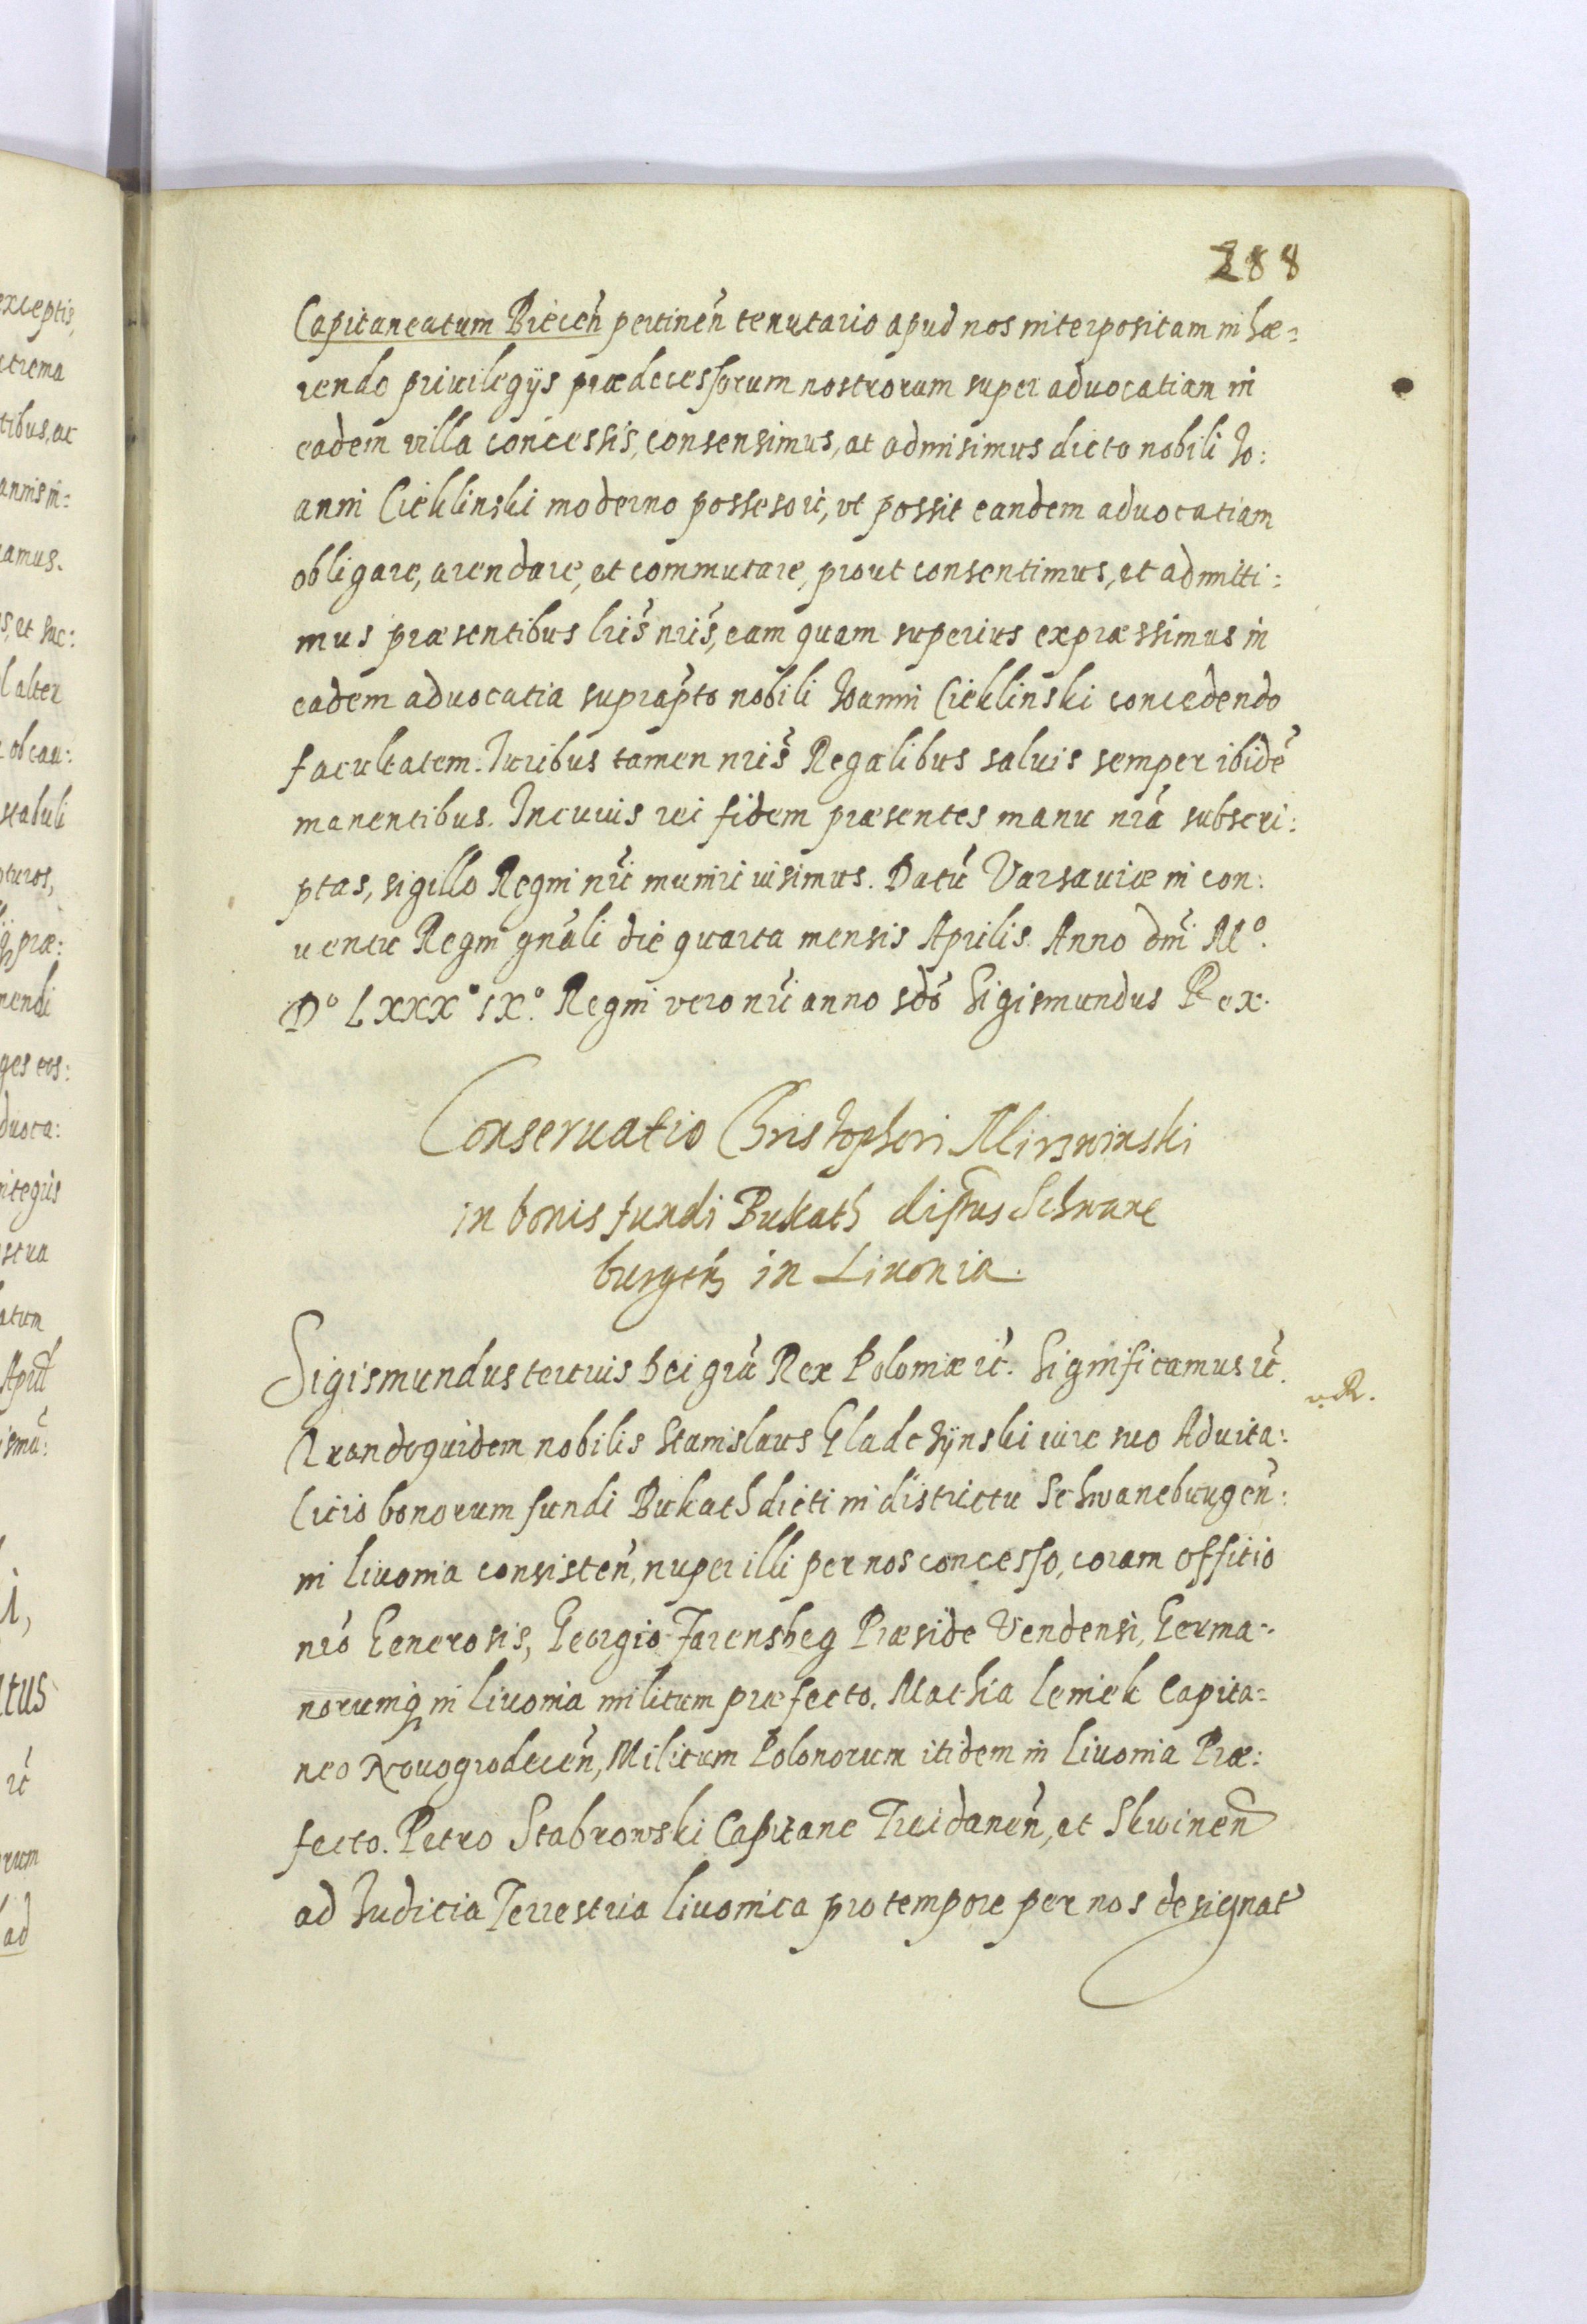 288
Capitaneatum Biecen̄ pertinen̄ tenutario apud nos interpositam inhæ=
rendo priuilegijs prædecessorum nostrorum super aduocatiam in
eadem villa concessis, consensimus, at admisimus dicto nobili Jo:
anni Cieklinski moderno possesori, vt possit eandem aduocatiam
obligare, arendare, et commutare, prout consentimus, et admitti:
mus præsentibus lris̄ nris̄, eam quam superius expræssimus in
eadem aduocatia suprap̄to nobili Joanni Cieklinski concedendo
facultatem. Juribus tamen nris̄ Regalibus saluis semper ibidē
manentibus. In cuius rei fidem præsentes manu nrā subscri:
ptas, sigillo Regni nrī muniri iusimus. Datū Varsauiæ in con:
uentu Regni gnāli die quarta mensis Aprilis. Anno dnī Mº.
Dº LXXXº IXº. Regni vero nrī anno sdō Sigismundus Rex.
Conseruatio Christophori Mirzwinski
in bonis fundi Bukath distrus Schwane
burgen̄ in Liuonia.
Sigismundus tertius Dei grā Rex Poloniæ etc̄. Significamus etc̄.
R.
Quandoquidem nobilis Stanislaus Gladczÿnski iure suo Aduita:
licio bonorum fundi Bukath dicti in districtu Schwaneburgen̄:
in Liuonia consisten̄, nuper illi per nos concesso, coram offitio
nrō Generosis, Georgio Farensbeg Præside Vendensi, Germa:
norumq in Liuonia militum præfecto. Mathia Leniek Capita=
neo Nouogrodecen̄, Militum Polonorum itidem in Liuonia Præ:
fecto. Petro Stabrowski Capitane Treidanen̄, et Skuinen̄
ad Judicia Terrestria Liuonica pro tempore per nos designat